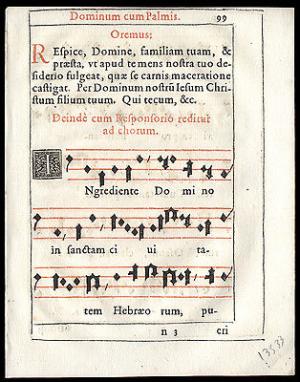 Dominum cum Palmis. 99
Oremus:
REspice, Domine, familiam tuam, &
præsta, vt apud te mens nostra tuo de-
siderio fulgeat, quæ se carnis maceratione
castigat. Per Dominum nostrũ Iesum Chri-
stum filium tuum. Qui tecum, &c.
Deindè cum Responsorio reditur
ad chorum.
INgrediente Do mi no
in sanctam ci ui ta-
tem Hebræo rum, pu-
n 3 eri
13533